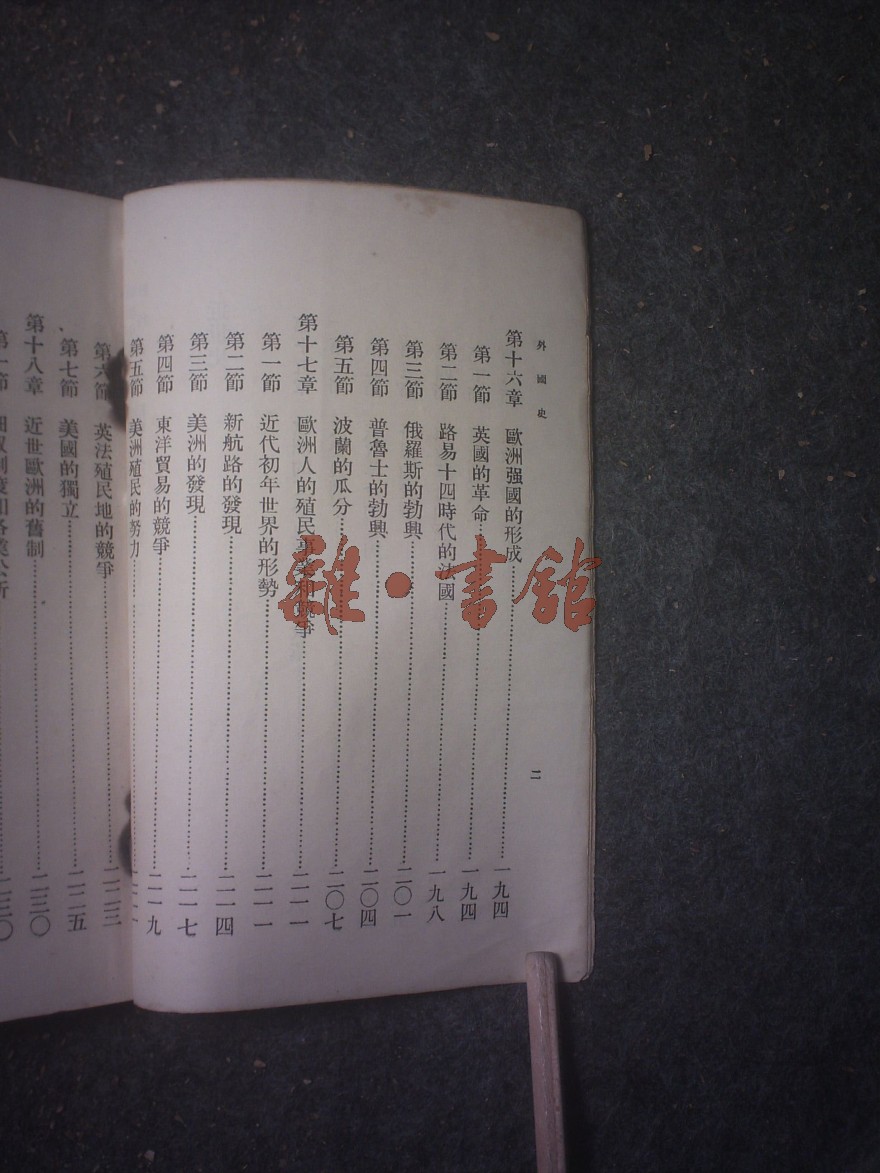 外國史
二
第十六章 歐洲强國的形成……一九四
第一節 英國的革命……一九四
第二節 路易十四時代的法國……一九八
第三節 俄羅斯的勃興……二〇一
第四節 普魯士的勃興……二〇四
第五節 波蘭的瓜分……二〇七
第十七章 歐洲人的殖民事業和競爭……二一一
第一節 近代初年世界的形勢……二一一
第二節 新航路的發現……二一四
第三節 美洲的發現……二一七
第四節 東洋貿易的競爭……二一九
第五節 美洲殖民的努力……二二一
第六節 英法殖民地的競爭……二二三
第七節 美國的獨立……二二五
第十八章 近世歐洲的舊制……二三〇
第一節……二三〇
雜·書館